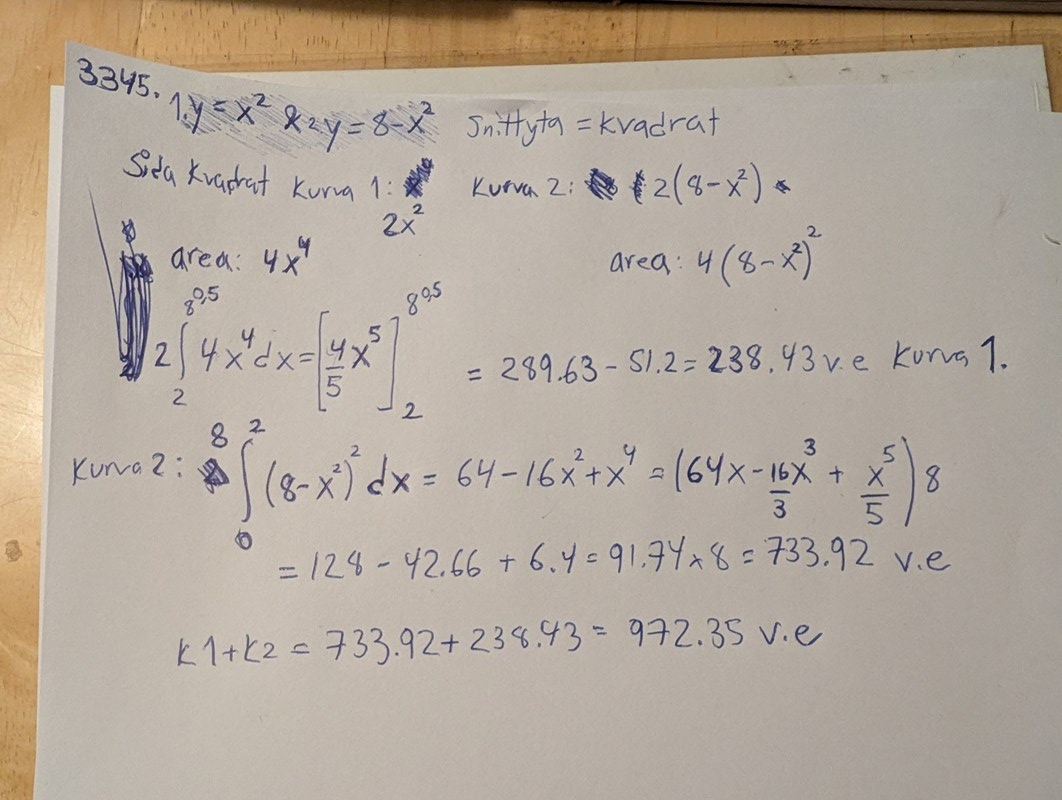 3345. 1. y = x² & 2 y = 8-x² Snittyta = kvadrat
Sida Kvadrat Kurva 1: Kurva 2: 2(8-x²)
2x²
area: 4x⁴ area: 4(8-x²)²
2 ∫₂^(8^0,5) 4x⁴dx = [4/5 x⁵]₂^(8^0,5) = 289.63 - 51.2 = 238.43 v.e Kurva 1.
Kurva 2: 8 ∫₀² (8-x²)² dx = 64-16x²+x⁴ = (64x - 16x³/3 + x⁵/5) 8
= 128 - 42.66 + 6.4 = 91.74 x 8 = 733.92 v.e
K1+K2 = 733.92 + 238.43 = 972.35 v.e